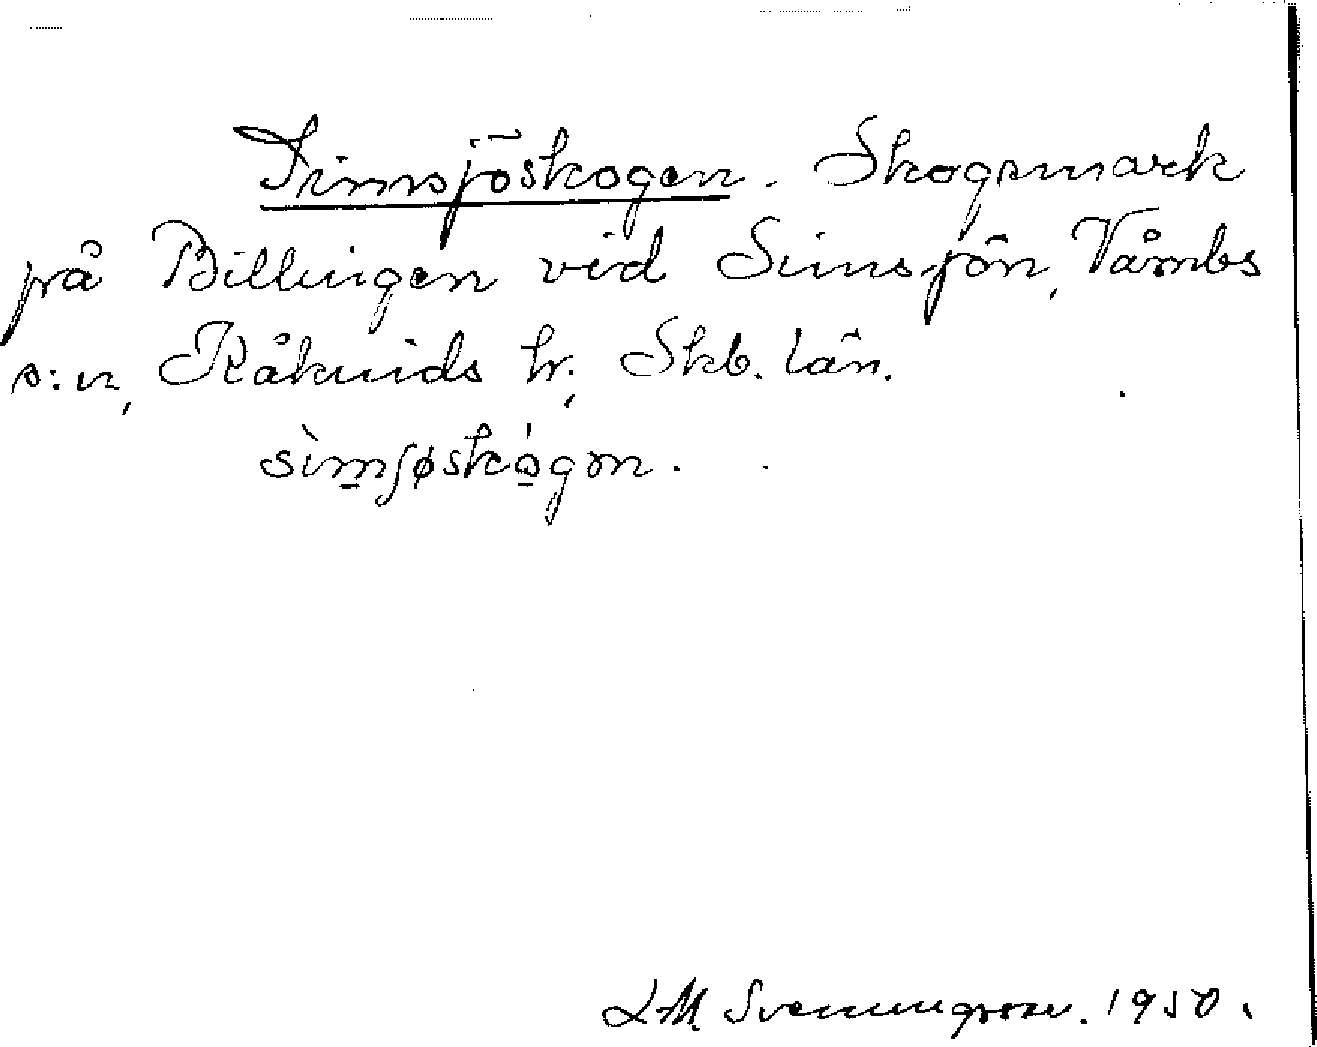 Simsjöskogen. Skogsmark
på Billingen vid Simsjön, Våmbs
s:n, Kåkinds hr., Skb. län.
sìmʃøskó̱gən.
LM Svenungsson. 1950.